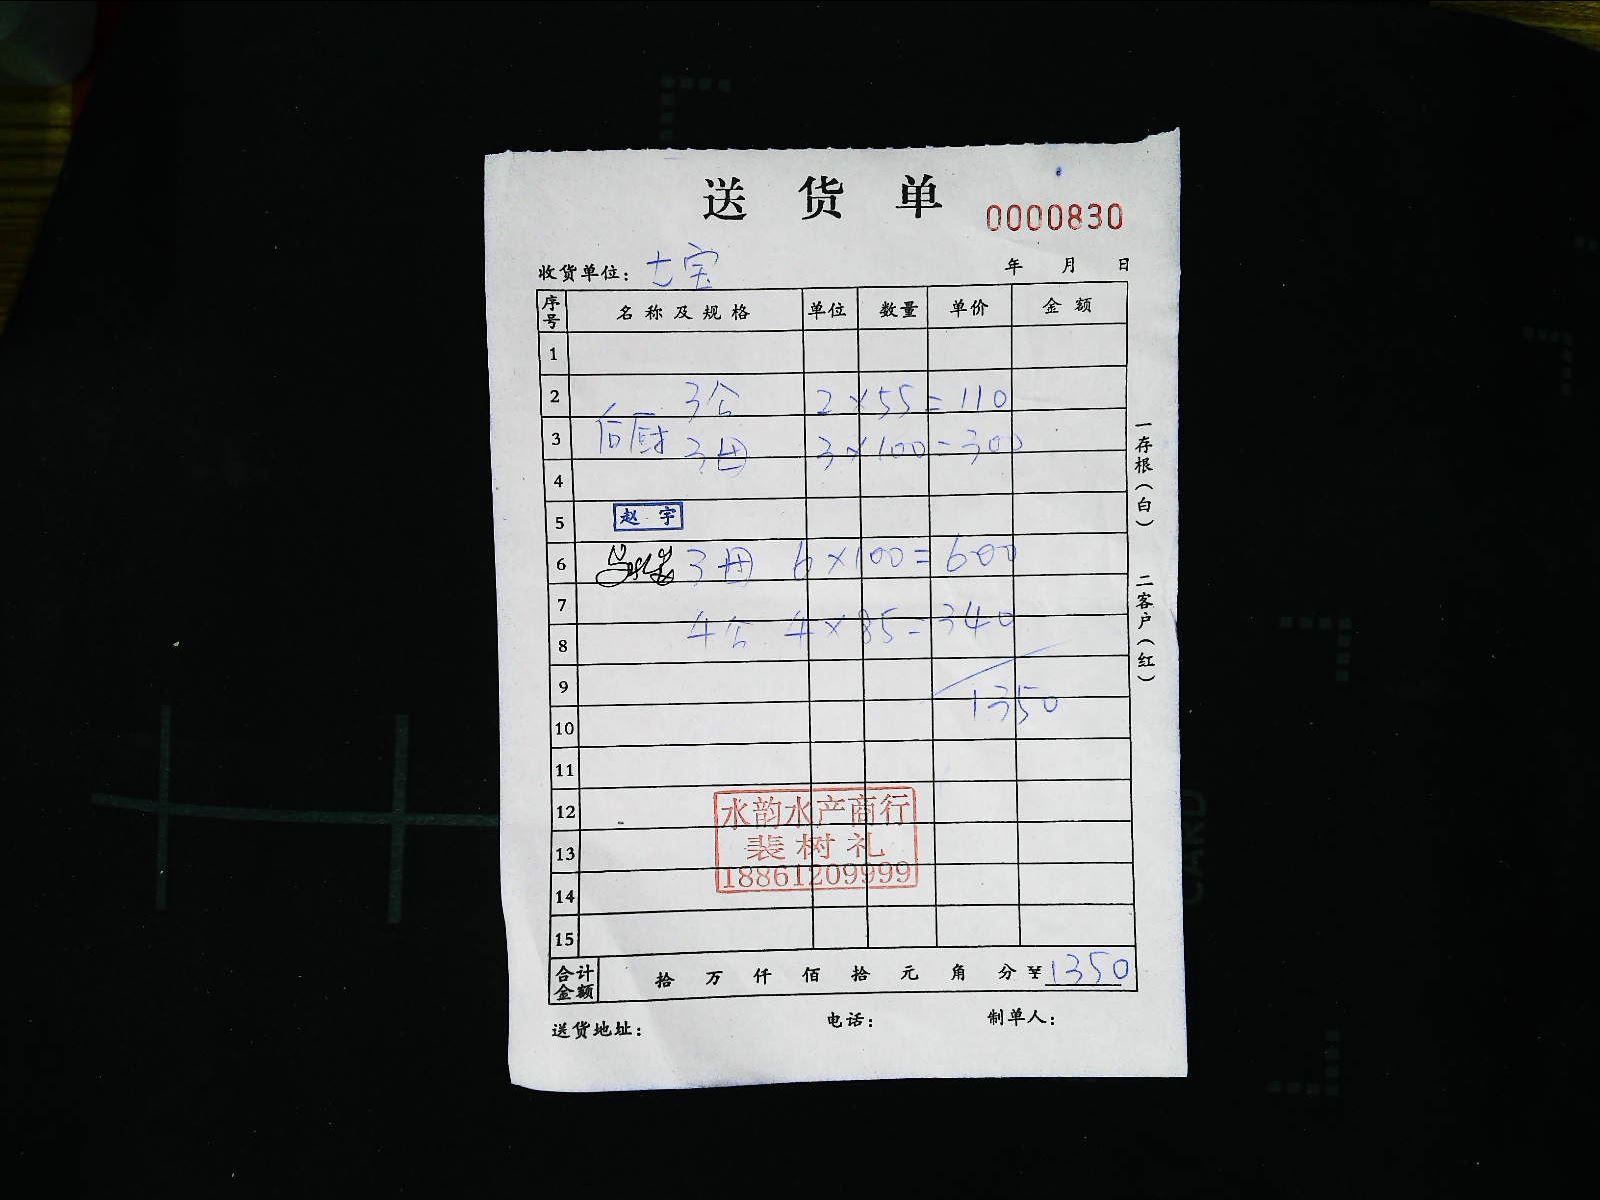 送 货 单
0000830
收货单位: 七宝 年 月 日
序号 名称及规格 单位 数量 单价 金额
1
2 3公 2×55=110
3 后厨 3母 3×100=300
4
5 赵宇
6 3母 6×100=600
7
8 4公 4×85=340
9
10 1350
11
12 水韵水产商行
13 裴树礼
14 18861209999
15
合计金额 拾 万 仟 佰 拾 元 角 分 ¥1350
送货地址: 电话: 制单人:
一存根(白)
二客户(红)
CARD